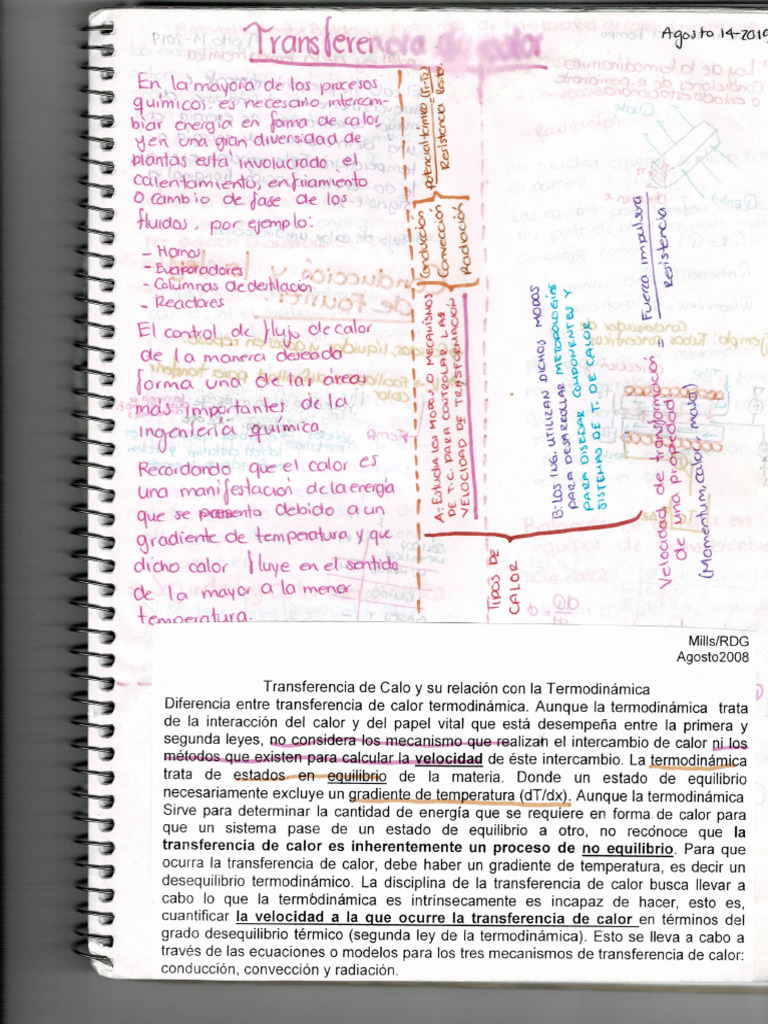 Transferencia de calor
Agosto 14-2019
En la mayoria de los procesos
químicos es necesario intercam-
biar energía en forma de calor,
y en una gran diversidad de
plantas esta involucrado el
calentamiento, enfriamiento
O cambio de fase de los
fluidos, por ejemplo:
- Hornos
- Evaporadores
- Columnas de destilación
- Reactores
El control de flujo de calor
de la manera deseada
forma una de las áreas
más importantes de la
ingeniería química.
Recordando que el calor es
una manifestación de la energía
que se presenta debido a un
gradiente de temperatura, y que
dicho calor fluye en el sentido
de la mayor a la menor
temperatura.
TIPOS DE
CALOR
A: Estudia los MODOS O MECANISMOS
DE T.C. PARA CONTROLAR LAS
VELOCIDAD DE TRANSFORMACIÓN
Conducción
Convección
Radiación
potencial térmico (T1-T2)
Resistencia
B: LOS ING. UTILIZAN DICHOS MODOS
PARA DESARROLLAR METODOLOGÍAS
PARA DISEÑAR COMPONENTES Y
SISTEMAS DE T. DE CALOR
Velocidad de transformación = Fuerza impulsora
de una propiedad Resistencia
(Momentum, calor, masa)
Mills/RDG
Agosto2008
Transferencia de Calo y su relación con la Termodinámica
Diferencia entre transferencia de calor termodinámica. Aunque la termodinámica trata
de la interacción del calor y del papel vital que está desempeña entre la primera y
segunda leyes, no considera los mecanismo que realizan el intercambio de calor ni los
métodos que existen para calcular la velocidad de éste intercambio. La termodinámica
trata de estados en equilibrio de la materia. Donde un estado de equilibrio
necesariamente excluye un gradiente de temperatura (dT/dx). Aunque la termodinámica
Sirve para determinar la cantidad de energía que se requiere en forma de calor para
que un sistema pase de un estado de equilibrio a otro, no reconoce que la
transferencia de calor es inherentemente un proceso de no equilibrio. Para que
ocurra la transferencia de calor, debe haber un gradiente de temperatura, es decir un
desequilibrio termodinámico. La disciplina de la transferencia de calor busca llevar a
cabo lo que la termodinámica es intrínsecamente es incapaz de hacer, esto es,
cuantificar la velocidad a la que ocurre la transferencia de calor en términos del
grado desequilibrio térmico (segunda ley de la termodinámica). Esto se lleva a cabo a
través de las ecuaciones o modelos para los tres mecanismos de transferencia de calor:
conducción, convección y radiación.